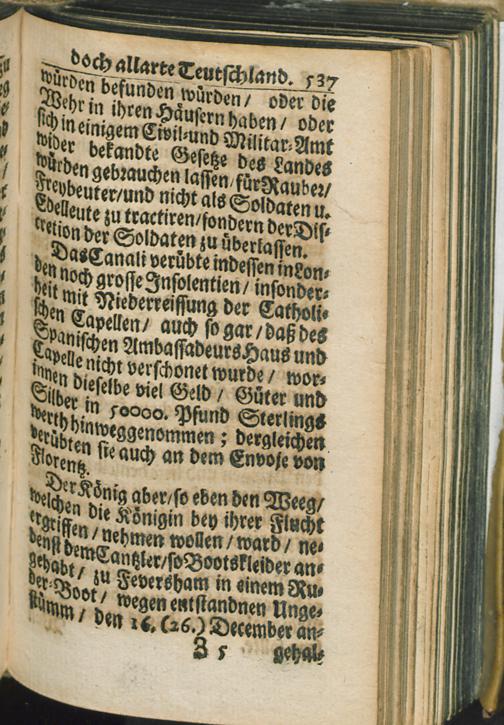 doch allarte Teutschland. 537
würden befunden würden / oder die
Wehr in ihren Häusern haben / oder
sich in einigem Civil- und Militar-Amt
wider bekandte Gesetze des Landes
würden gebrauchen lassen / für Rauber /
Freybeuter / und nicht als Soldaten u.
Edelleute zu tractiren / sondern der Dis-
cretion der Soldaten zu überlassen.
Das Canali verübte indessen in Lon-
den noch grosse Insolentien / insonder-
heit mit Niederreissung der Catholi-
schen Capellen / auch so gar / daß des
Spanischen Ambassadeurs Haus und
Capelle nicht verschonet wurde / wor-
innen dieselbe viel Geld / Güter und
Silber in 50000. Pfund Sterlings
werth hinweggenommen ; dergleichen
verübten sie auch an dem Envoje von
Florentz.
Der König aber / so eben den Weeg /
welchen die Königin bey ihrer Flucht
ergriffen / nehmen wollen / ward / ne-
benst dem Cantzler / so Bootskleider an-
gehabt / zu Feversham in einem Ru-
der-Boot / wegen entstandnen Unge-
stümm / den 16. (26.) December an-
Z 5 gehal-